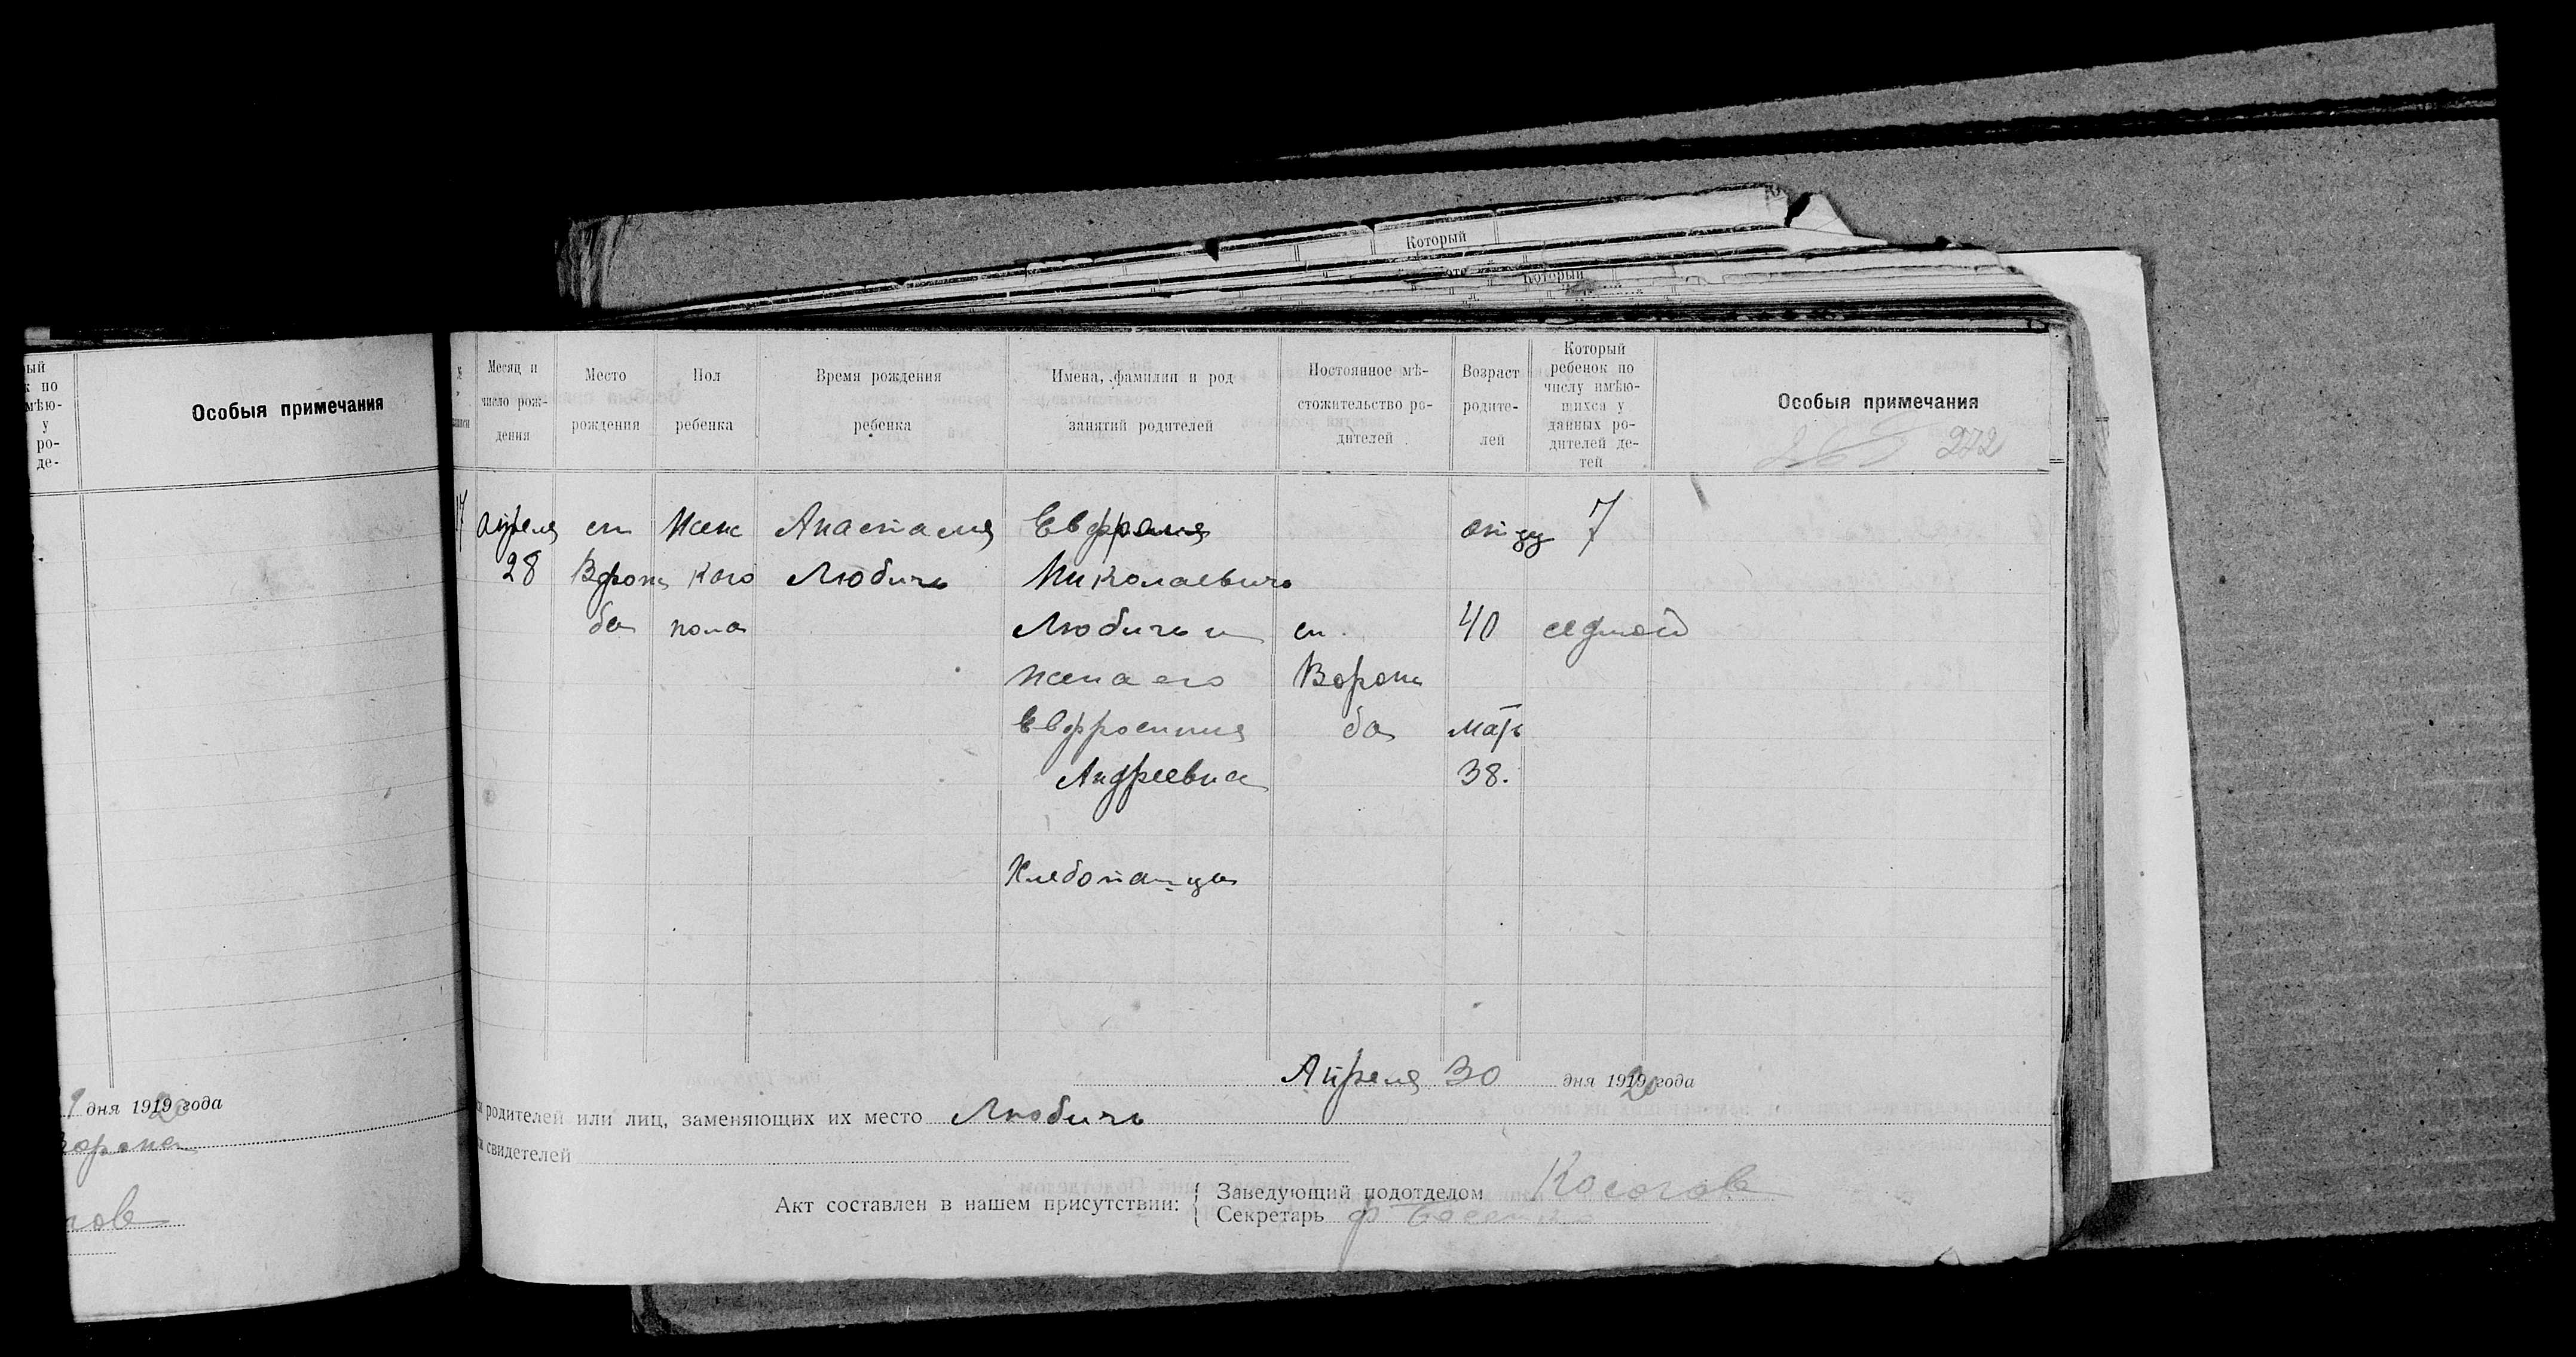 Который
Который
Особыя примечания
у
ро-
де-
дня 1919 года
Месяц и
число рож-
дения
Место
рождения
Пол
ребенка
Время рождения
ребенка
Имена, фамилии и род
занятий родителей
Постоянное мѣ-
стожительство ро-
дителей
Возраст
родите-
лей
Который
ребенок по
числу имѣю-
щихся у
данных ро-
дителей де-
тей
Особыя примечания
272
апреля
28
сл
Ворож
ба
Женс
кого
пола
Анастасия
Любичъ
Николаевичъ
Любичъ и
жена его
Евфросиния
Андреевна
Хлебопашцы
сл.
Ворож
ба
отцу
40
мать
38.
7
седмой
Апреля 30 дня 1920 года
родителей или лиц, заменяющих их место Любичъ
свидетелей
Акт составлен в нашем присутствии:
Заведующий подотделом
Секретарь